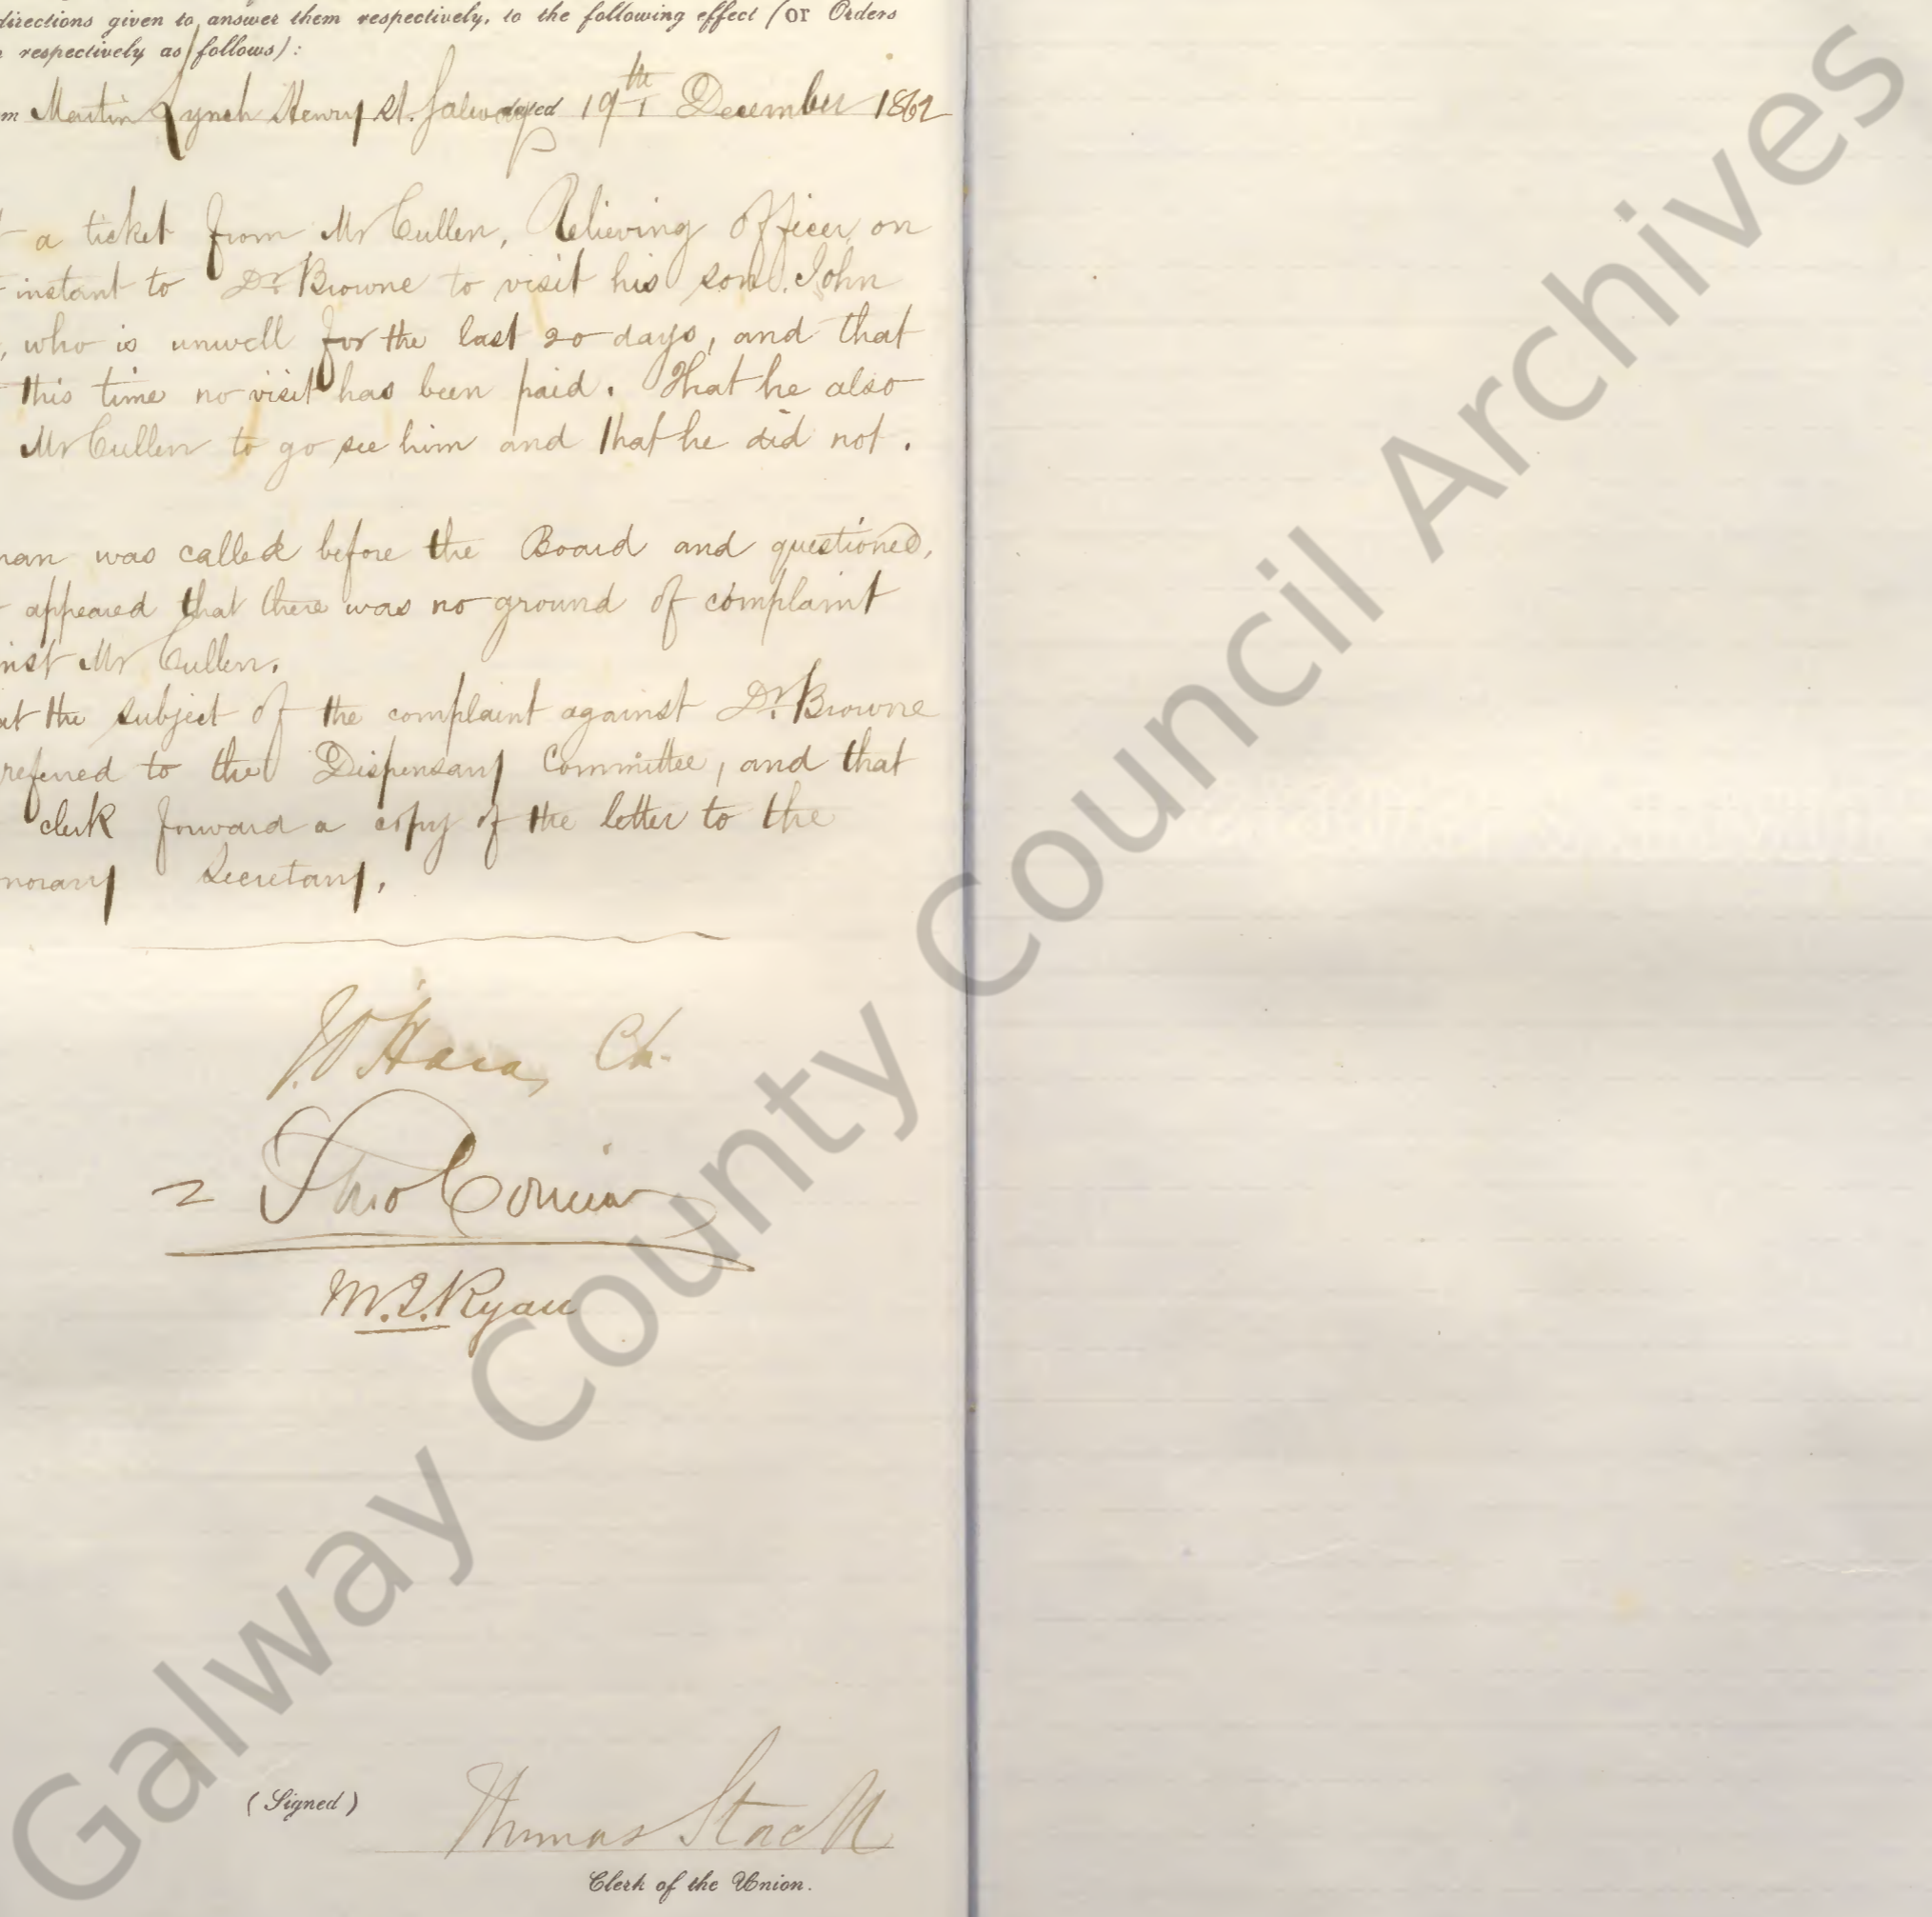 directions given to answer them respectively, to the following effect (or Orders
respectively as follows):
m Martin Lynch Henry St. Galway dated 19th December 1862
a ticket from Mr Cullen, Relieving Officer, on
instant to Dr. Browne to visit his son John
, who is unwell for the last 20 days, and that
this time no visit has been paid. That he also
Mr Cullen to go see him and that he did not.
man was called before the Board and questioned,
appeared that there was no ground of complaint
inst Mr Cullen.
at the subject of the complaint against Dr. Browne
referred to the Dispensary Committee, and that
clerk forward a copy of the letter to the
norary Secretary.
J. O'Hara, Ch.
M. J. Ryan
(Signed) Thomas Stack
Clerk of the Union.
Galway County Council Archives